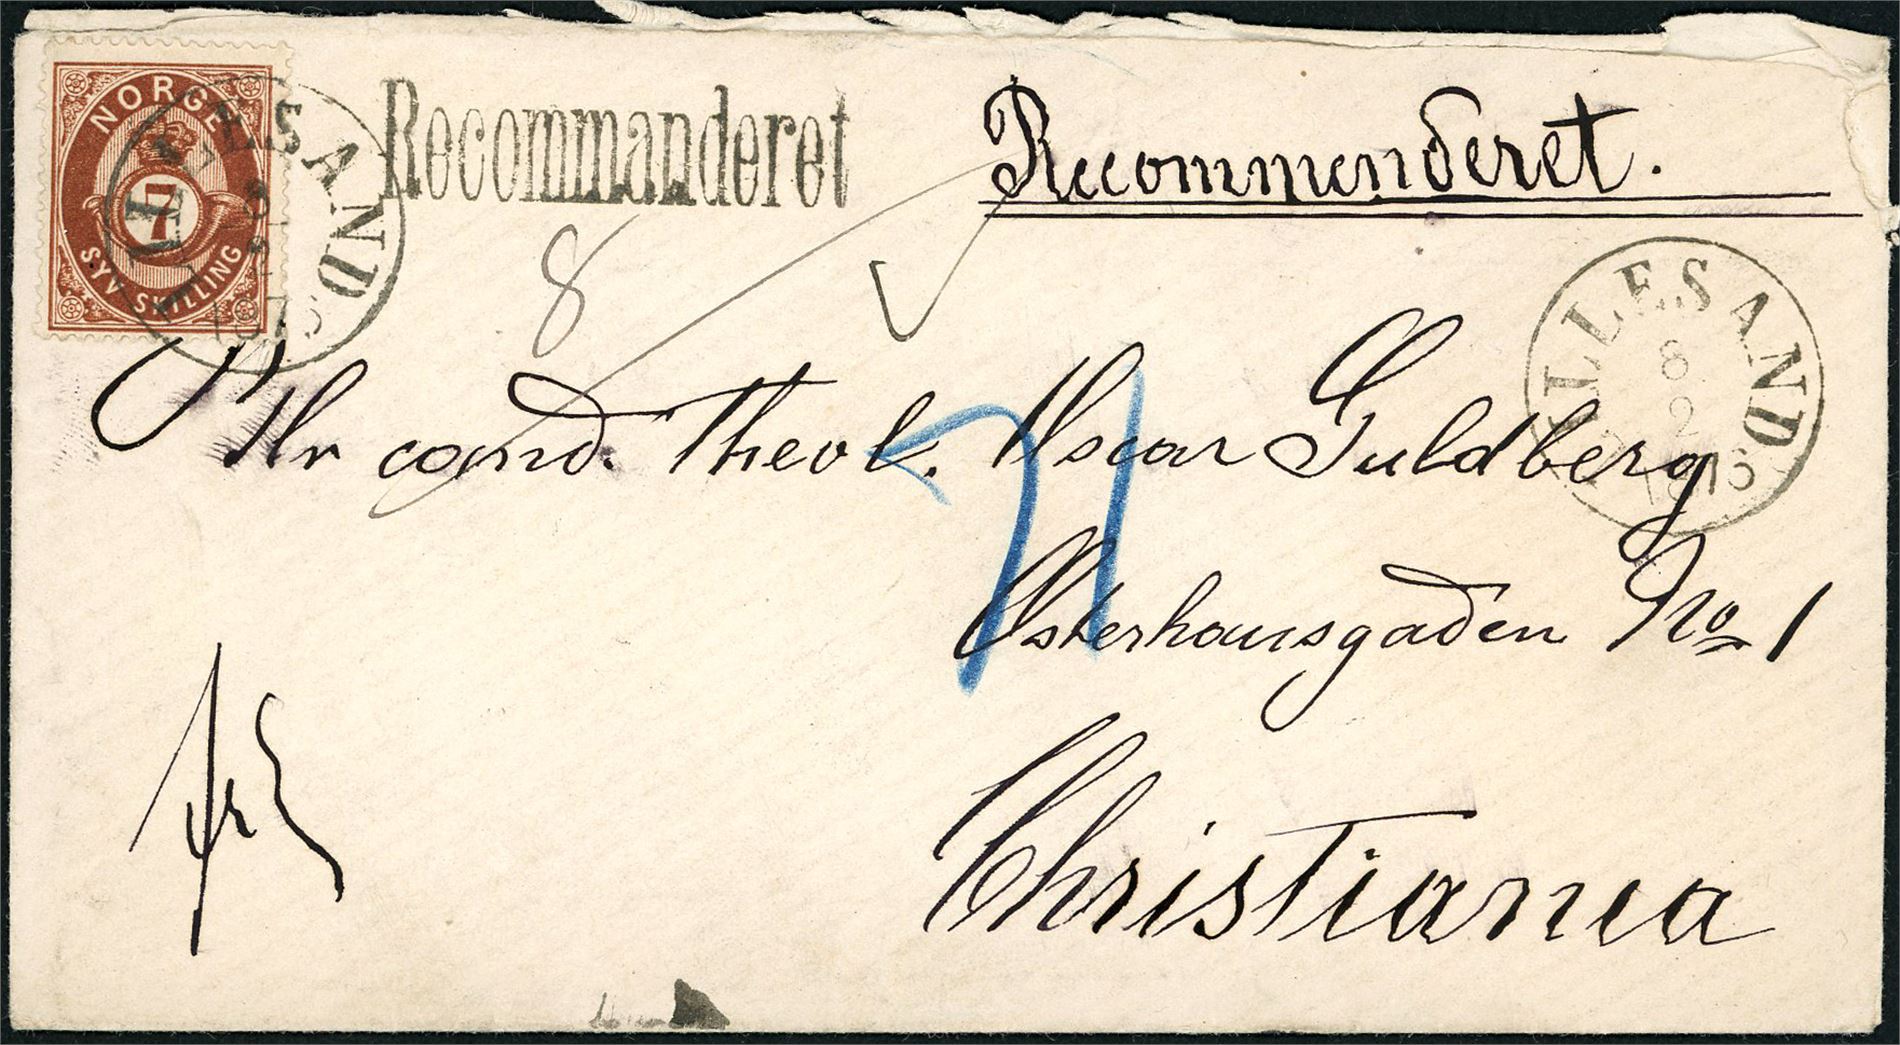 NORGE
7
SYV SKILLING
LILLESAND
8
2
1875
Recommanderet
Recommanderet.
8
LILLESAND
8
2
1875
Hr cand. Theol. Oscar Guldberg
Osterhausgaden No 1
Christiania